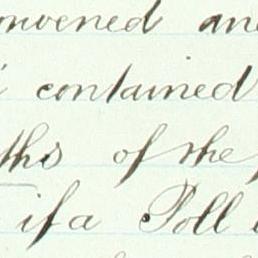 onvened and
contained
ths of the
if a Poll